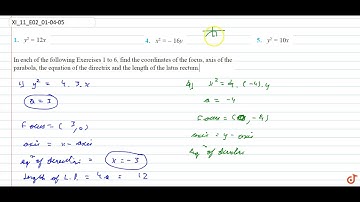 XI_11_E02_01-04-05
1. y² = 12x 4. x² = – 16y 5. y² = 10x
In each of the following Exercises 1 to 6, find the coordinates of the focus, axis of the
parabola, the equation of the directrix and the length of the latus rectum.
1) y² = 4.3.x
a = 3
Focus = (3,0)
axis = x-axis
eqⁿ of directrix = x = -3
length of L.R. = 4a = 12
4) x² = 4.(-4).y
a = -4
Focus = (0,-4)
axis = y-axis
eqⁿ of directri